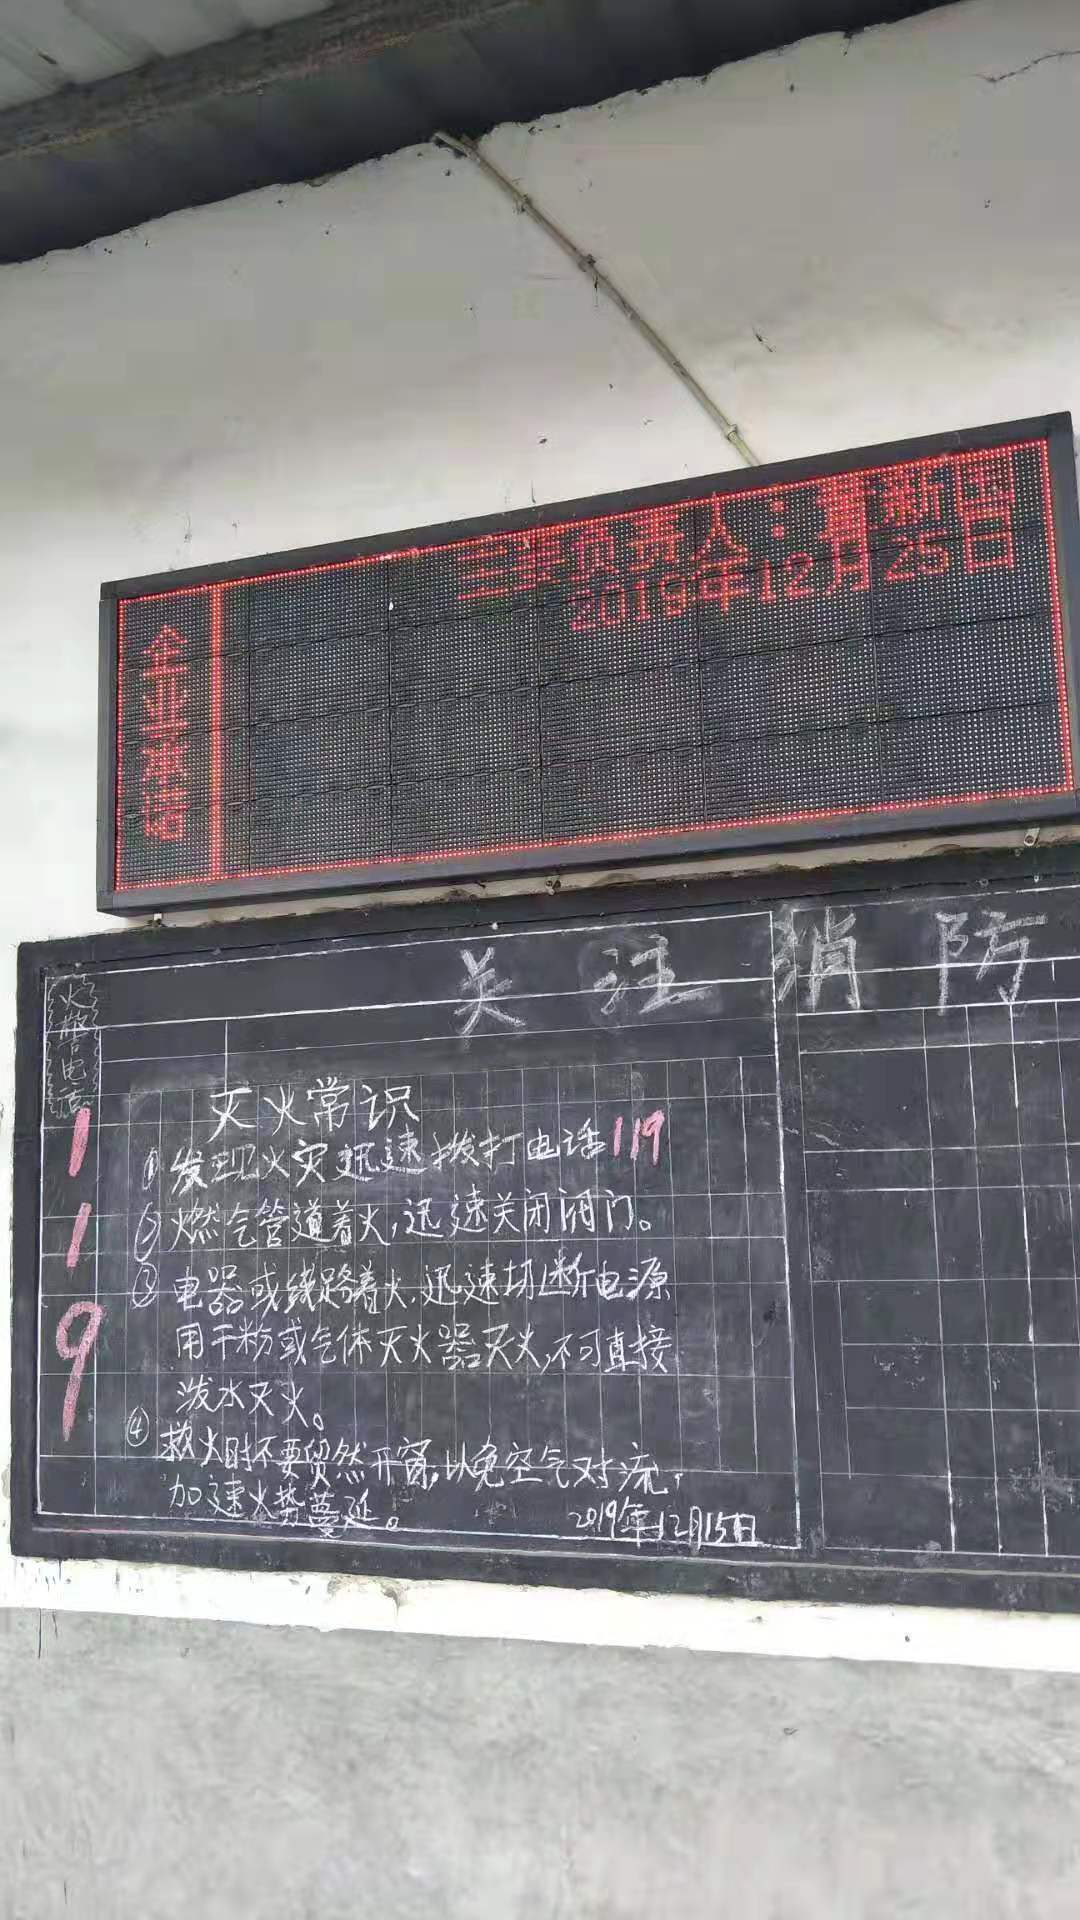 企业承诺
主要负责人：黄新国
2019年12月25日
关注消防
火警电话
119
灭火常识
①发现火灾迅速拨打电话119
②燃气管道着火,迅速关闭阀门。
③电器或线路着火,迅速切断电源
用干粉或气体灭火器灭火,不可直接
泼水灭火。
④救火时不要贸然开窗,以免空气对流,
加速火势蔓延。
2019年12月15日